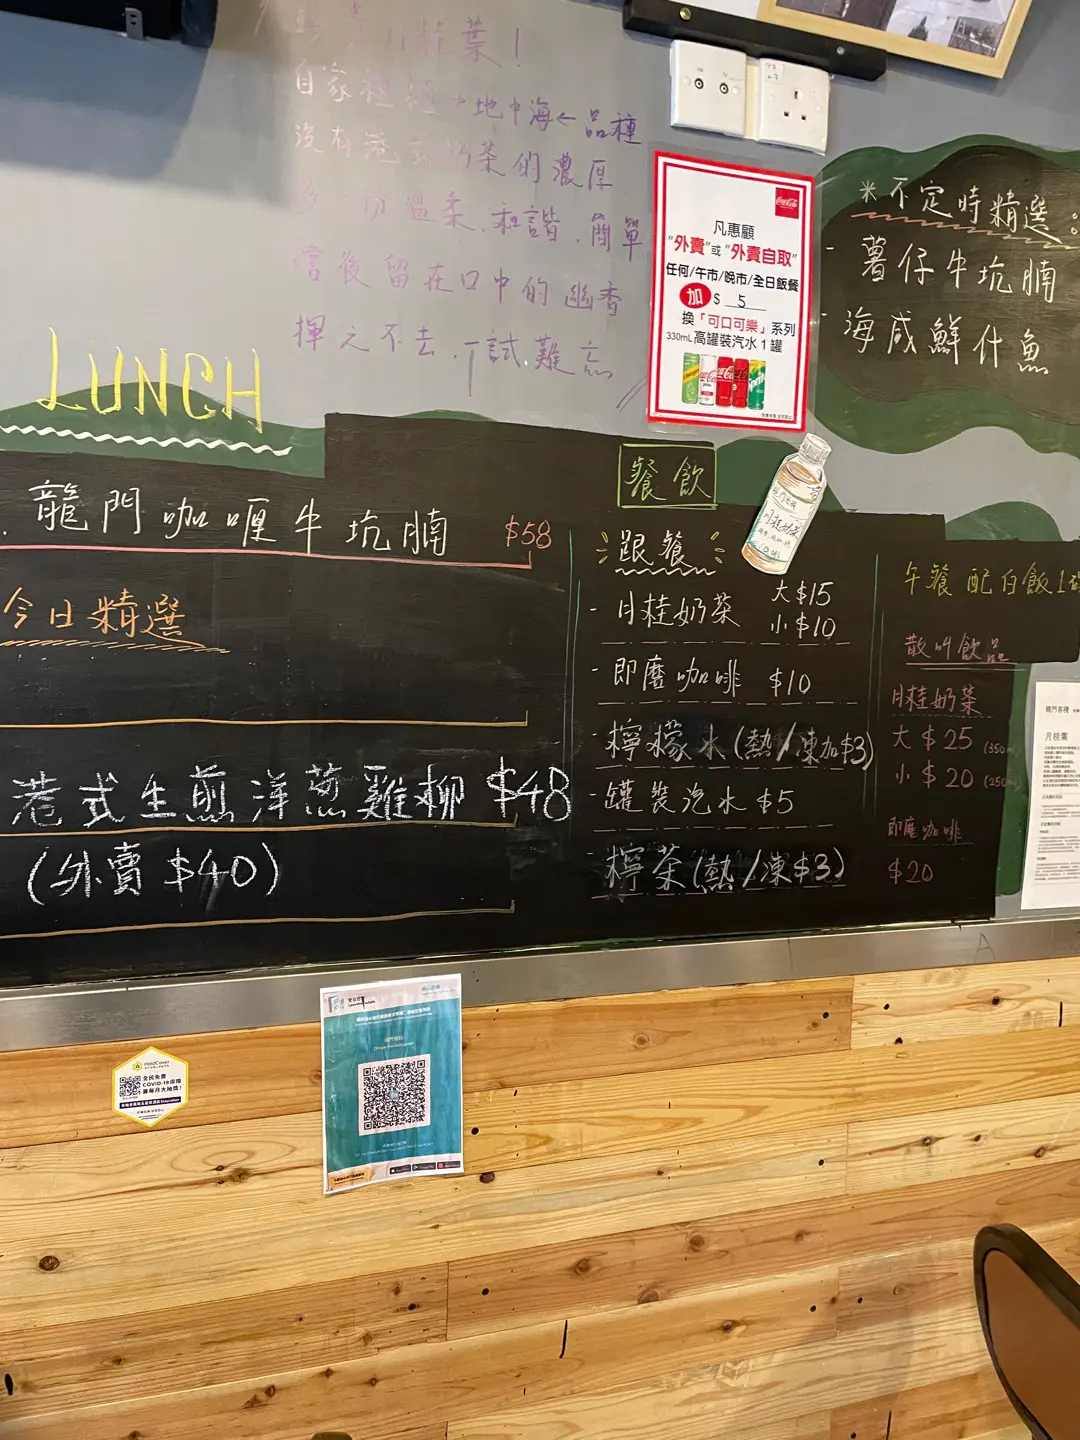 葉！
自家種植 地中海←品種
沒有港式奶茶的濃厚
多一份溫柔.和諧.簡單
嚐後留在口中的幽香
揮之不去.一試.難忘
Coca-Cola
凡惠顧
"外賣"或"外賣自取"
任何/午市/晚市/全日飯餐
加 $ 5
換「可口可樂」系列
330mL高罐裝汽水1罐
*不定時精選。
- 薯仔牛坑腩
- 海咸鮮什魚
LUNCH
龍門咖喱牛坑腩 $58
今日精選
港式生煎洋葱雞柳 $48
(外賣 $40)
餐飲
跟餐
- 月桂奶茶 大 $15
小 $10
- 即磨咖啡 $10
- 檸檬水(熱/凍加$3)
- 罐裝汽水 $5
- 檸茶(熱/凍$3)
月桂奶茶
午餐配白飯1
散叫飲品
月桂奶茶
大 $25 (350
小 $20 (250
即磨咖啡
$20
龍門客棧
月桂葉
安心出行
全民免費
COVID-19保障
兼每月大抽獎！